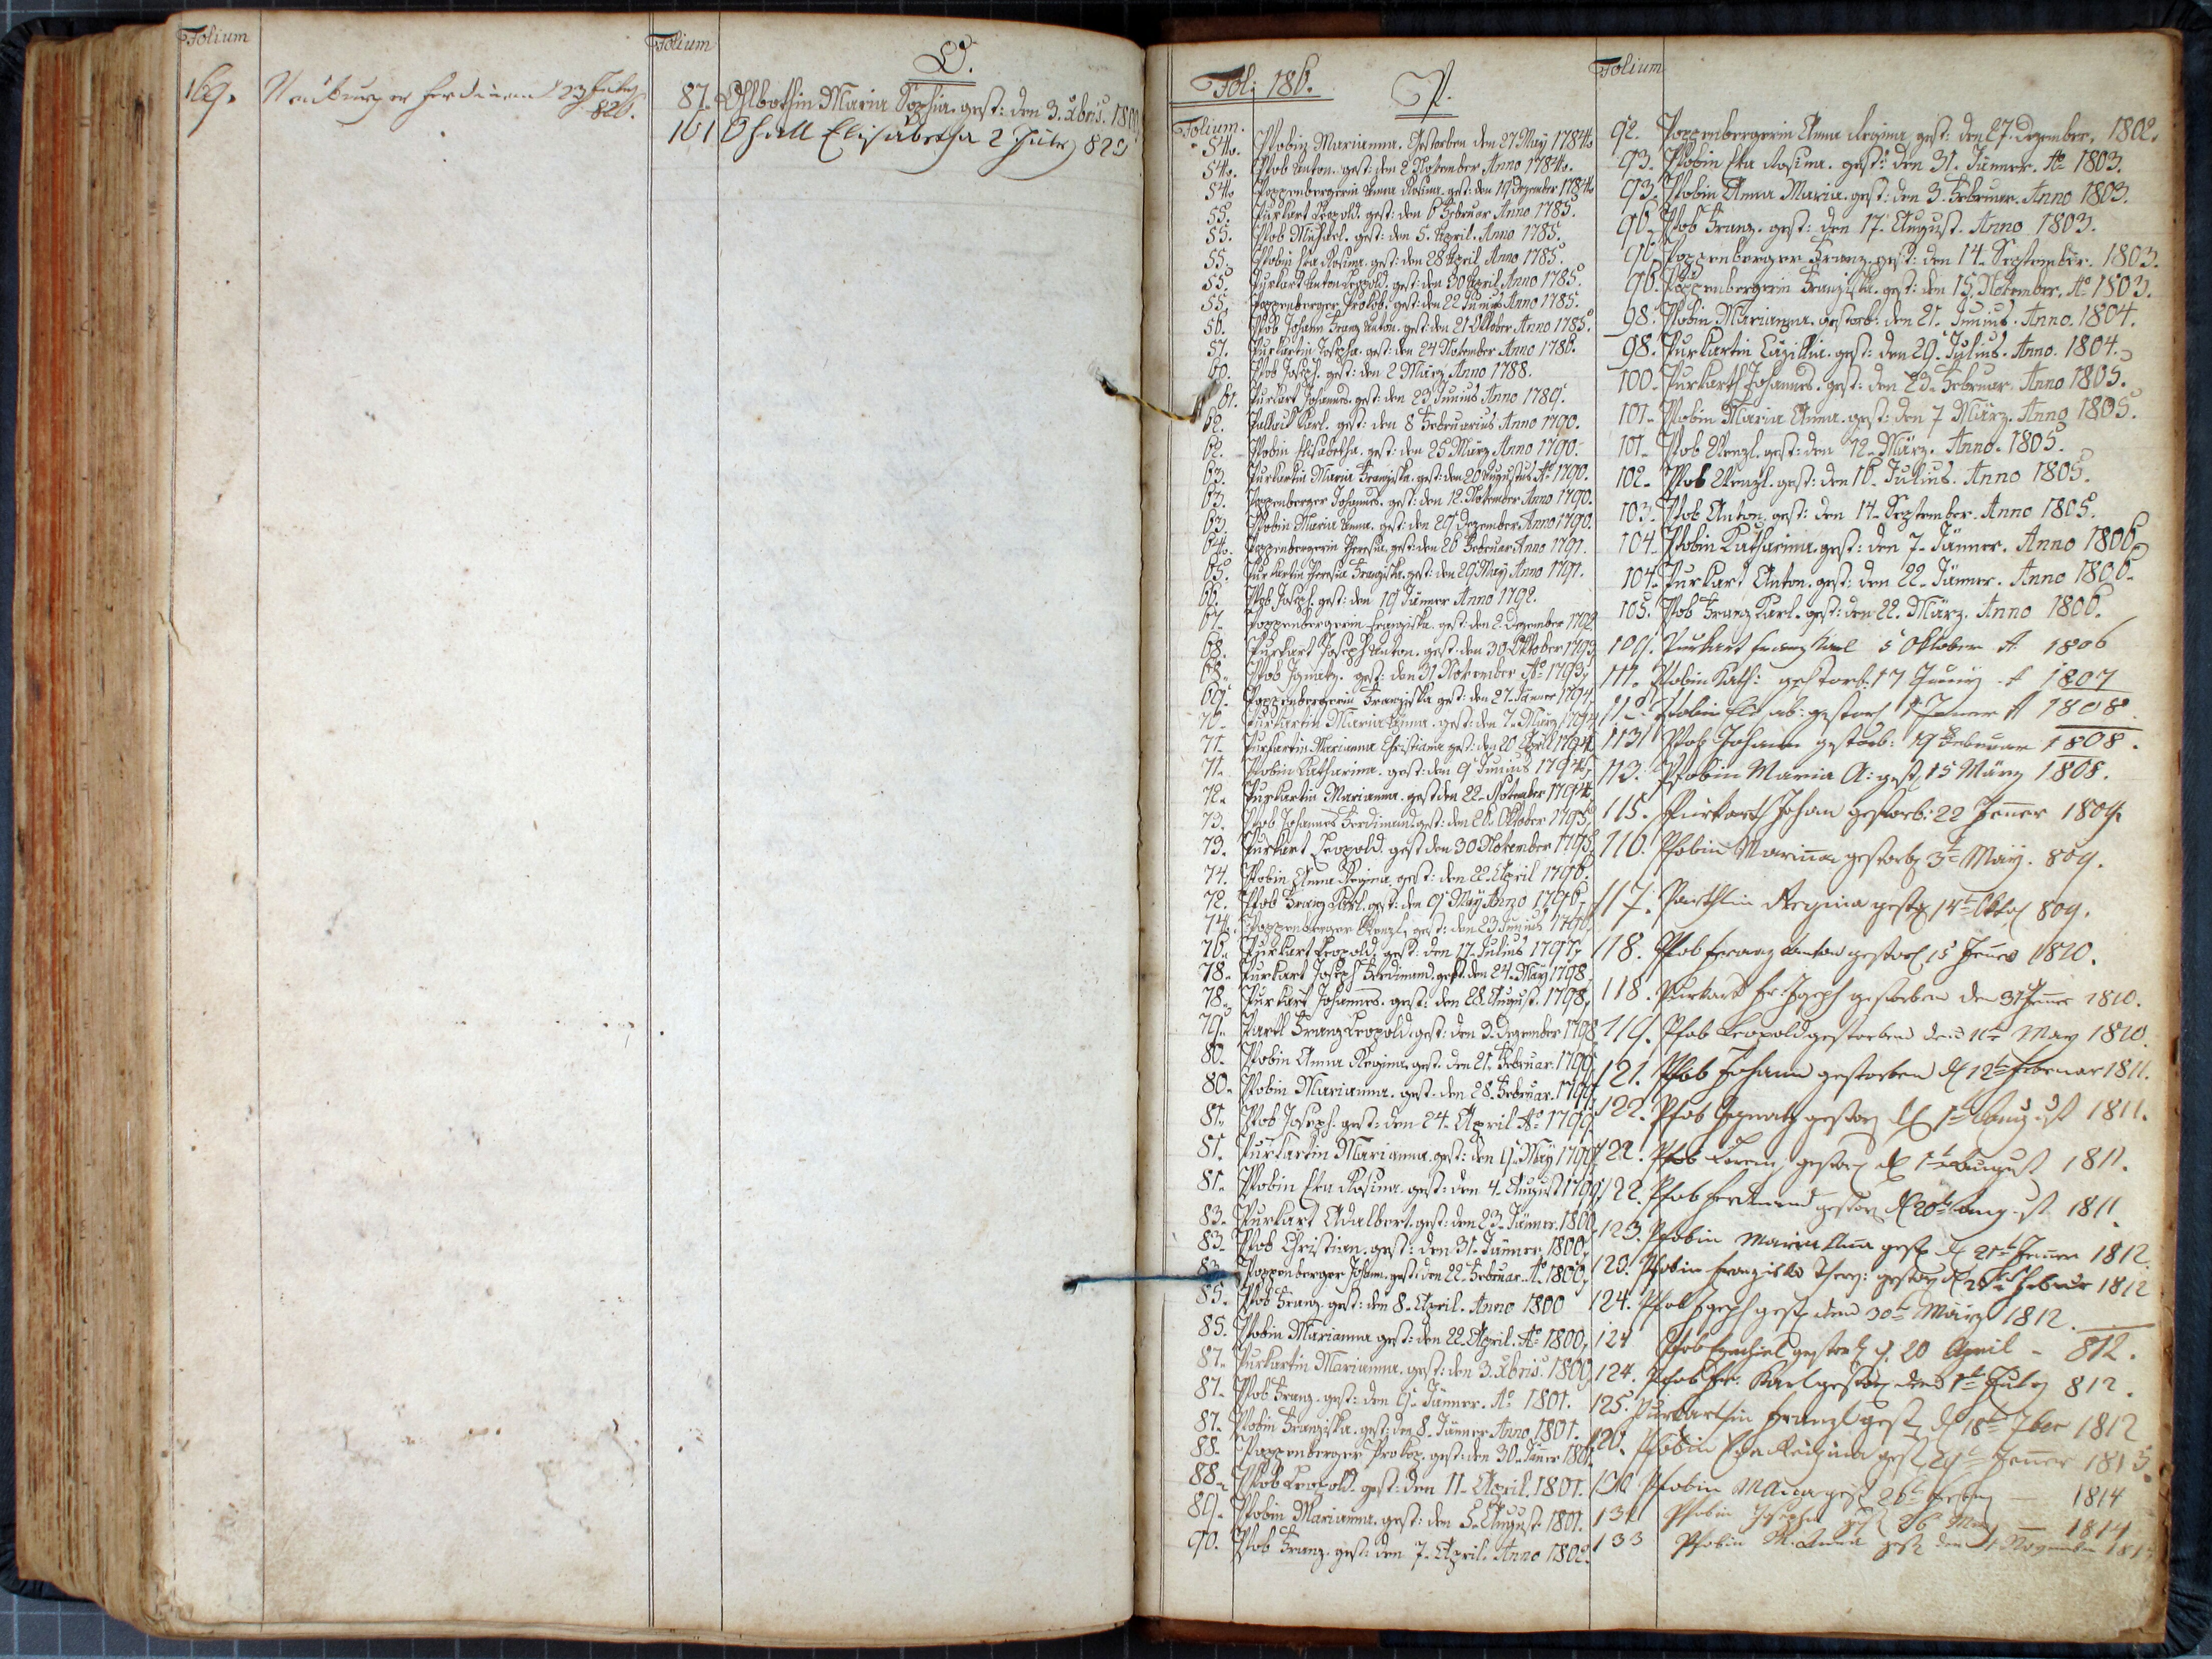 Folium
169. Neuburger Ferdinand 23 July
826.
Folium
O.
87. Ohlbothin Maria Sophia. gest: den 3. xbris. 1800
161 Ohall Elisabetha 2 July 823
Fol: 186.
P.
Folium.
54. Pfobin Marianna. Gestorben den 27 May 1784.
54. Pfob Anton. gest: den 2 November Anno 1784.
54. Poppenbergerin Anna Rosina. gest: den 19 Dezember 1784
55. Purkart Leopold. gest: den 6 Februar Anno 1785.
55. Pfob Michael. gest: den 5. April. Anno 1785.
55. Pfobin Eva Rosina. gest: den 28 April Anno 1785.
55. Purkart Anton Leopold. gest: den 30 April Anno 1785.
55. Poppenberger Prokob. gest: den 22 Junius Anno 1785.
56. Pfob Johann Franz Anton. gest: den 21 Oktober Anno 1785.
57. Purkartin Josepha. gest: den 24 November Anno 1786.
60. Pfob Joseph. gest: den 2 März Anno 1788.
61. Purkart Johannes. gest: den 23 Junius Anno 1789.
62. Karl. gest: den 8 Februarius Anno 1790.
62. Pfobin Elisabetha. gest: den 25 März Anno 1790.
63. Purkartin Maria Franziska. gest: den 20 Augustus Ao 1790.
63. Poppenberger Johannes. gest: den 12. November Anno 1790.
63. Pfobin Maria Anna. gest: den 29 Dezember Anno 1790.
64. Poppenbergerin Theresia. gest: den 26 Februar Anno 1791.
65. Purkartin Theresia Franziska. gest: den 29 May Anno 1791.
66. Pfob Joseph. gest: den 19 Jänner Anno 1792.
67. Poppenbergerin Franziska. gest: den 2. Dezember 1792
68. Purkart Joseph Anton. gest: den 30 Oktober 1793
68. Pfob Ignatz. gest: den 31 November Ao 1793.
69. Poppenbergerin Franziska gest: den 27. Jänner 1794.
70. Purkartin Maria Anna. gest: den 7. März 1794
71. Purkartin Marianna Christiana gest: den 20 April 1794
71. Pfobin Katharina. gest: den 9 Junius 1794.
72. Purkartin Marianna. gest den 22. November 1794
73. Pfob Johannes Ferdinand. gest: den 26. Oktober 1795.
73. Purkart Leopold. gest den 30 November 1795
74. Pfobin Anna Regina gest: den 22. April 1796.
72. Pfob Franz Karl. gest: den 9 May Anno 1796.
74. Poppenberger Wenzl. gest: den 23 Junius 1796
76. Purkart Leopold. gest: den 17. Julius 1797.
78. Purkart Joseph Ferdinand. gest: den 24. May 1798
78. Purkart Johannes. gest: den 28. August. 1798.
79. Franz Leopold. gest: den 3. Dezember 1798
80. Pfobin Anna Regina. gest. den 21. Februar. 1799
80. Pfobin Marianna. gest. den 28. Februar. 1799
81. Pfob Joseph. gest: den 24. April Ao 1799.
81. Purkartin Marianna. gest: den 9. May 1799
81. Pfobin Eva Rosina. gest: den 4. August 1799
83. Purkart Adalbert. gest: den 23. Jänner. 1800
83. Pfob Christian. gest: den 31. Jänner 1800.
83. Poppenberger Johan. gest: den 22. Februar. Ao 1800.
85. Pfob Franz. gest: den 8. April. Anno 1800
85. Pfobin Marianna gest: den 22. April Ao 1800.
87. Purkartin Marianna. gest: den 3. xbris. 1800
87. Pfob Franz. gest: den 9. Jänner. Ao 1801.
87. Pfobin Franziska. gest: den 8. Jänner Anno 1801.
88. Poppenberger Prokop. gest: den 30. Jänner 1801.
88. Pfob Leopold. gest: den 11. April. 1801.
89. Pfobin Marianna. gest: den 5. August 1801.
90. Pfob Franz. gest: den 7. April. Anno 1802.
Folium
92. Poppenbergerin Anna Regina gest: den 27. Dezember. 1802.
93. Pfobin Eva Rosina. gest: den 31. Jänner. Ao 1803.
93. Pfobin Anna Maria. gest: den 3. Februar. Anno 1803.
96. Pfob Franz. gest: den 17. August. Anno 1803.
96. Poppenberger Franz. gest: den 14. September. 1803.
96. Poppenbergerin Franziska. gest: den 15. November. Ao 1803.
98. Pfobin Marianna. gestorb: den 21. Junius. Anno. 1804.
98. Purkartin Cäzilia. gest: den 29. Julius. Anno. 1804.
100. Purkarth Johannes. gest: den 23. Februar. Anno 1805.
101. Pfobin Maria Anna. gest: den 7 März. Anno 1805.
101. Pfob Wenzl. gest: den 12. März. Anno. 1805.
102. Pfob Wenzl. gest: den 16. Julius. Anno 1805.
103. Pfob Anton. gest: den 14. September. Anno 1805.
104. Pfobin Katharina. gest: den 7. Jänner. Anno 1806
104. Purkart Anton. gest: den 22. Jänner. Anno 1806.
105. Pfob Franz Karl. gest: den 22. März. Anno 1806.
109. Purkart Franz Karl 5 Oktober A 1806
111. Pfobin Kath: gestorb: 17 Juny A 1807
112. Pfobin Elisab: gestorb Jenner A 1808.
113. Pfob Johann gestorb: 19 Februar 1808.
113. Pfobin Maria A: gest, 15 März 1808.
115. Purkart Johan gestorb: 22 Jenner 1809.
116. Pfobin Marina gestorb 3t May. 809.
117. Regina gest 14t 809.
118. Pfob Franz Anton gestorb 15 Jenner 1810.
118. Purkart Fr: Joseph gestorben den 31 Jenner 1810.
119. Pfob Leopold gestorben den May 1810.
121. Pfob Johann gestorben d 12t Februar 1811.
122. Pfob Ignatz gestorb d 1t August 1811.
122. Pfob gestorb d August 1811.
122. Pfob Ferdinand gestorb d 20t August 1811.
123. Pfobin Maria Anna gest d 21t Jenner 1812.
123. Pfobin Franziska Theres: gestorb Februar 1812
124. Pfob Joseph gest den 30t März 1812.
124 Pfob gestorb d. 20 April - 812.
124. Pfob Fr: Karl gestorb den 1t July 812.
125. Purkarthin Franzl gest d 18t 7ber 1812
126. Pfobin Eva Regina gest Jenner 1813.
130 Pfobin Maria gest 26t 1814
131 Pfobin Josepha gest 26 May — 1814
133 Pfobin M. Anna gest den November